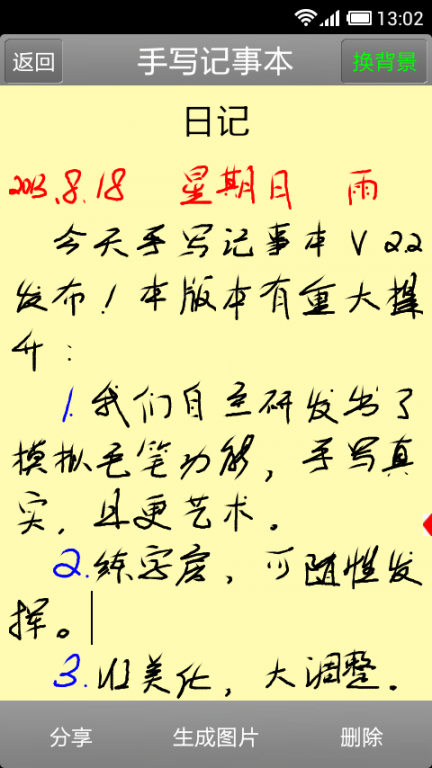 13:02
返回 手写记事本 换背景
日记
2013.8.18 星期日 雨
今天手写记事本V2.2
发布！本版本有重大提
升：
1.我们自主研发出了
模拟毛笔功能，手写真
实，且更艺术。
2.练字房，可随性发
挥。
3.UI美化，大调整。
分享 生成图片 删除